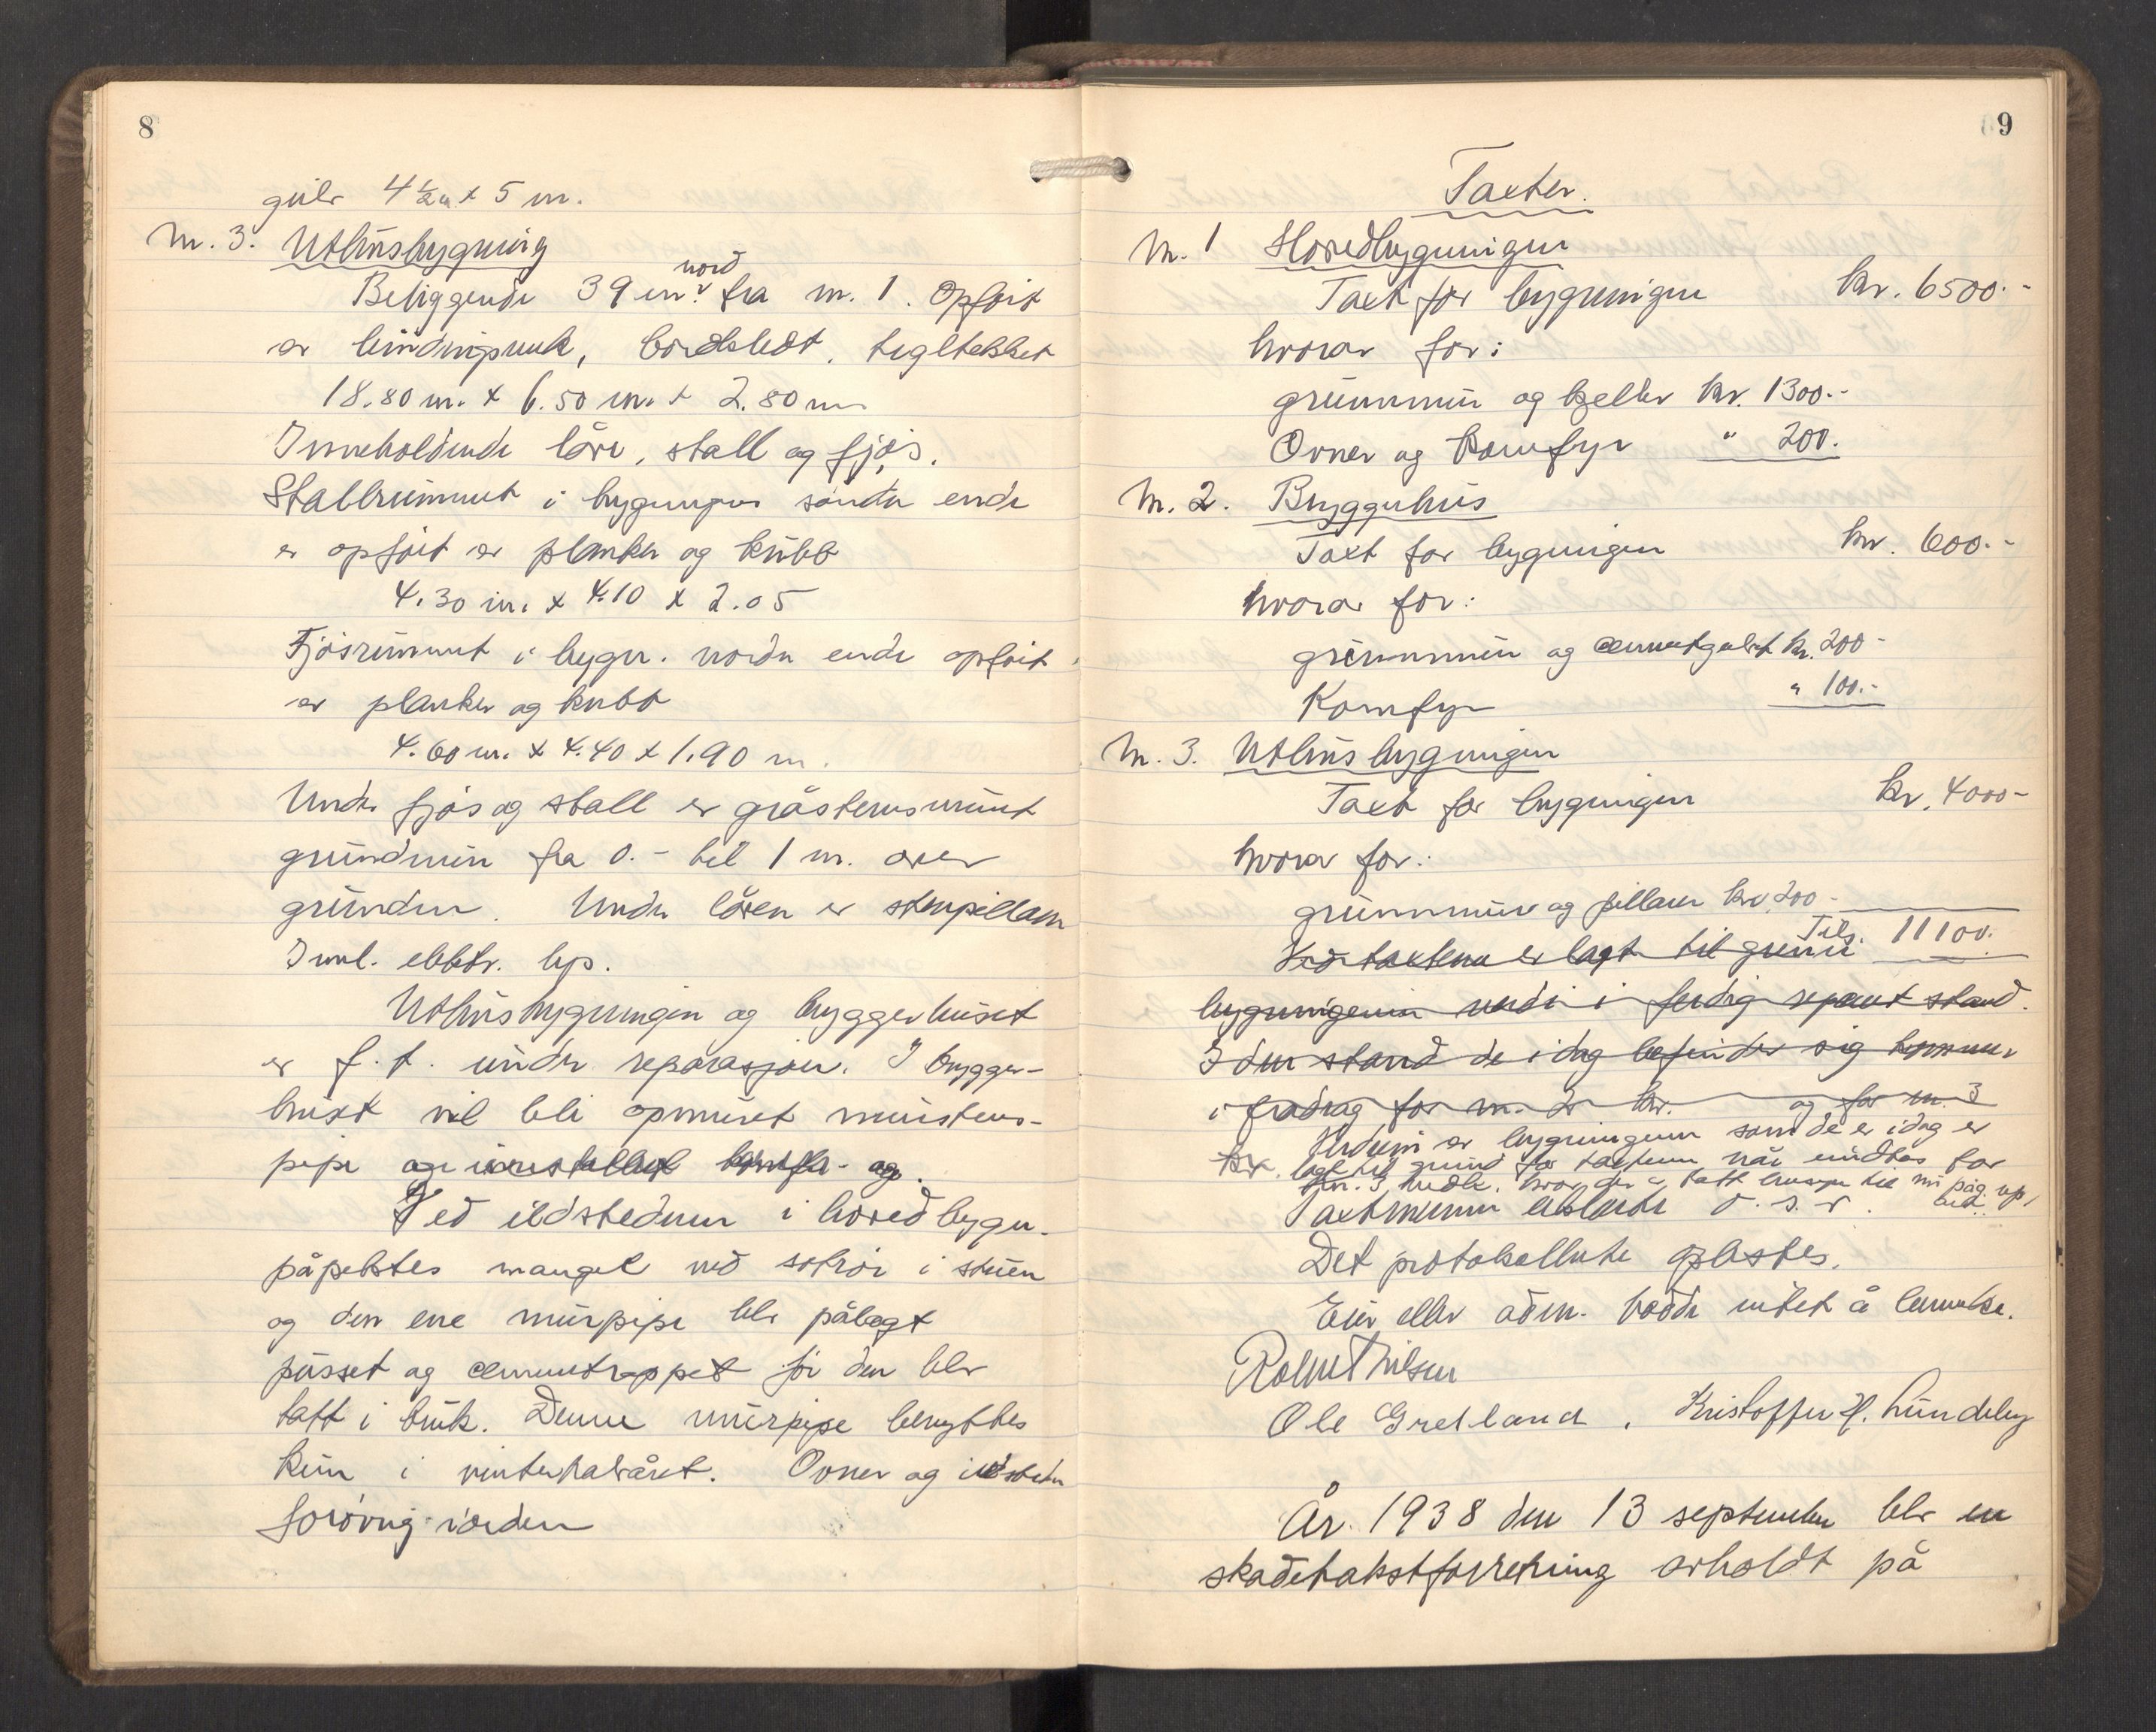 8
gulv 4 1/2 x 5 m.
M. 3. Uthusbygning
Beliggende 39 m. nord fra M. 1. Opføit
av bindingsverk, bordkledt, tegltekket
18.80 m. x 6.50 m. x 2.80 m
Inneholdende låve, stall og fjøs.
Stallrummet i bygningens søndre ende
er opføit av planker og kubb
4.30 m. x 4.10 x 2.05
Fjøsrummet i bygn. nordre ende opføit
av planker og kubb
4.60 m. x 4.40 x 1.90 m.
Under fjøs og stall er gråstensmuret
grundmur fra 0.- til 1 m. over
grunden. Under låven er stenpillarer
Innl. elektr. lys.
Uthusbygningen og bryggerhuset
er f. t. under reparasjon. I brygger-
huset vil bli opmuret murstens-
pipe og innstallert komfyr og.
Ved ildstedene i hovedbygn.
påpektes mangel ved sotrør i stuen
og den ene murpipe blev pålagt
pusset og cementrappet før den blev
tatt i bruk. Denne murpipe benyttes
kun i vinterhalvåret. Ovner og ildsteder
forøvrig i orden
9
Taxter.
M. 1 Hovedbygningen
Taxt for bygningen kr. 6500.-
hvorav for:
grunnmur og kjeller kr. 1300.-
Ovner og komfyr " 200.
M. 2. Bryggerhus
Taxt for bygningen kr. 600.-
hvorav for:
grunnmur og cementgulvet kr. 200-
Komfyr " 100.-
M. 3. Uthusbygningen
Taxt for bygningen kr. 4000-
hvorav for:
grunnmur og pillarer kr. 200-
Tils. 11100.
Ved taxtene er lagt til grunn
bygningenes verdi i ferdig reparert stand.
I den stand de idag befinder sig kommer
i fradrag for m. 2 kr. og for m. 3
kr.
Verdien av bygningene som de er idag er
lagt til grund for taxtene når undtas for
m. 3 vedk. hvor der er tatt hensyn til nu påg. rep.
arb.
Taxtmennene erklærte o. s. v.
Det protokollerte oplestes.
Eier eller adm. hadde intet å bemerke.
Robert Nilsen
Ole Gretland. Kristoffer H. Lundeby
År 1938 den 13 september blev en
skadetakstforretning avholdt på